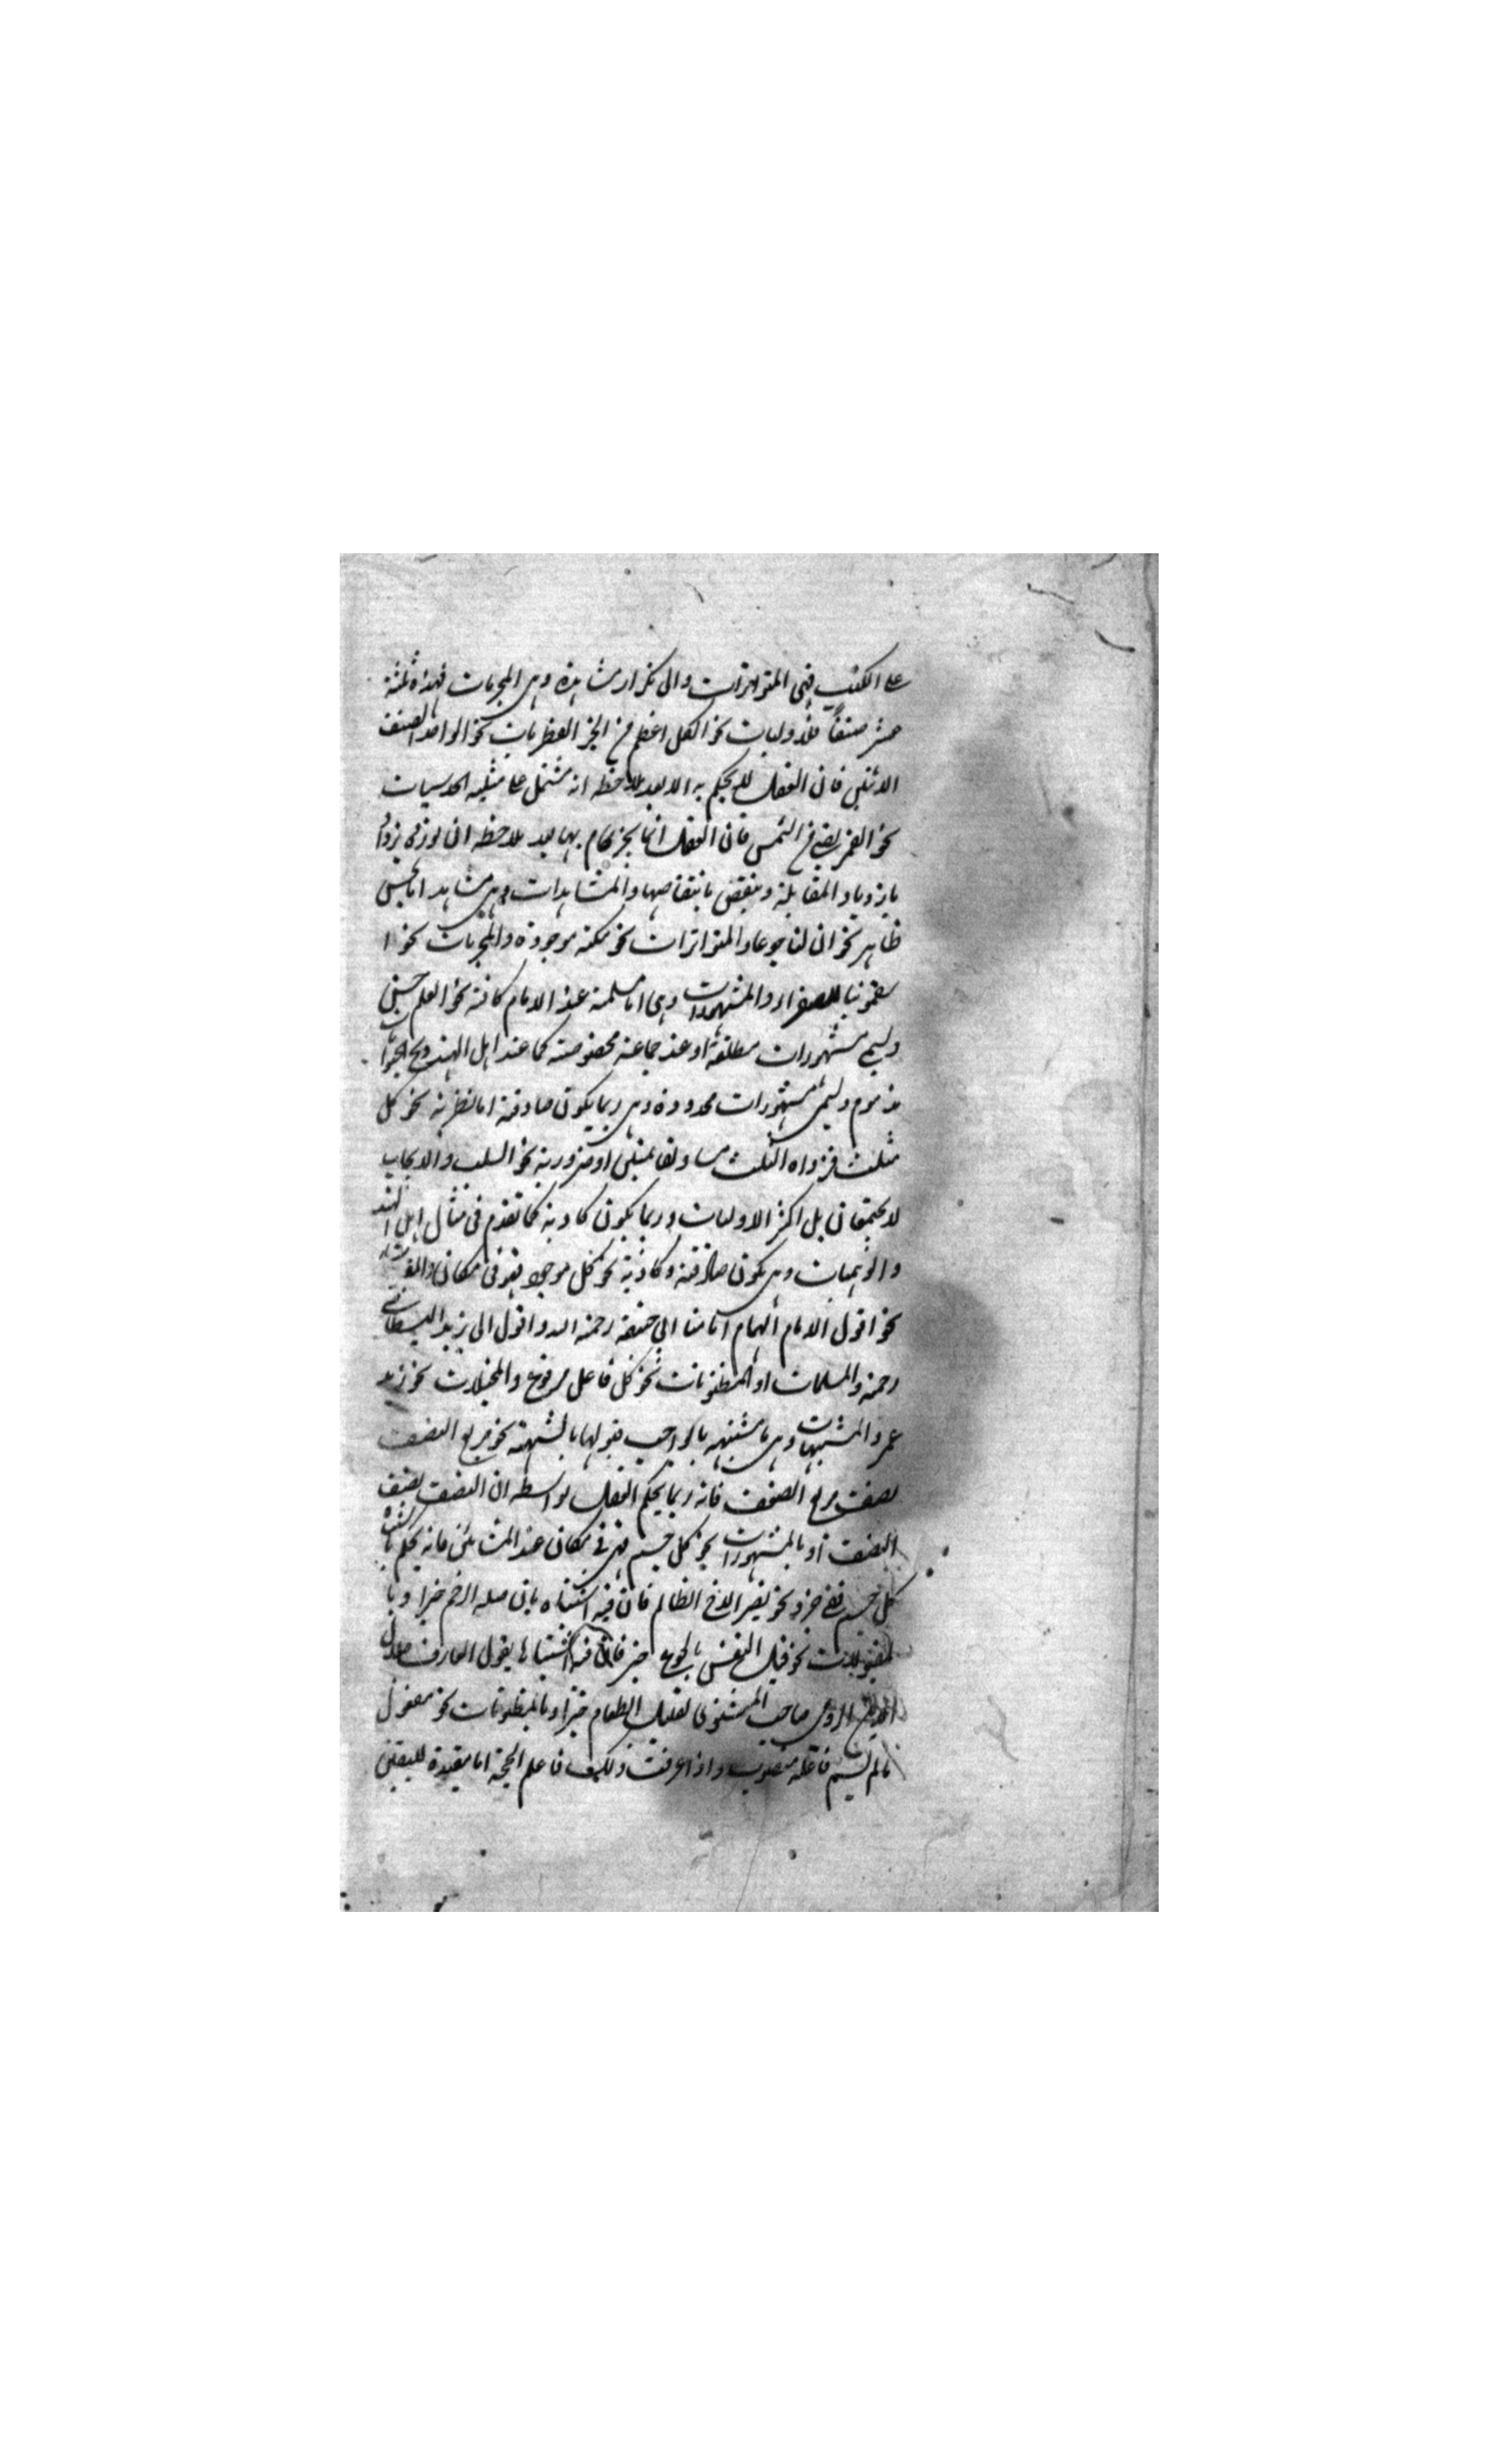 على الكذب فهي المتواترات والى تكرار مشاهدة وهى المجربات فهذه ثلثة
عشر صنفا فالاوليات نحو الكل اعظم من الجز الفطريات نحو الواحد نصف
الاثنين فان العقل لا يحكم به الا بعد ملاحظة انه مشتمل على مثليه الحدسيات
نحو القمر يضيء من الشمس فان العقل انما يجزم بها بعد ملاحظة ان نوره يزداد
بازدياد المقابلة وينقص بانتقاصها والمشاهدات وهى مشاهد اما بحس
ظاهر نحو ان لنا جوعا والمتواترات نحو مكة موجودة والمجربات نحو ا
سقمونيا للصفراء والمشهورات وهى اما مسلمة عند الانام كافة نحو العلم حسن
وليسمى مشهورات مطلقة او عند جماعة مخصوصة كما عند اهل الهند ذبح الحيوانات
مذموم وليسمى مشهورات محدودة وهى ربما يكون صادقة اما نظرية نحو كل
مثلث فزواياه الثلث مساو لقائمتين او ضرورية نحو السلب والايجاب
لا يجتمعان بل اكثر الاوليات وربما يكون كاذبة كما تقدم فى مثال اهل الهند
والوهميات وهى يكون صادقة وكاذبة نحو كل موجود فهو فى مكان والمقبولات
نحو اقول الامام الهمام امامنا ابى حنيفة رحمه الله واقول ابى يزيد البسطامى
رحمه والمسلمات او المظنونات نحو كل فاعل مرفوع والمخيلات نحو زيد
عمر والمشبهات وهى ما يشتبه بالواجب قبولها بالشبهة نحو مربع النصف
نصف مربع الضعف فانه ربما يحكم العقل بواسطة ان النصف نصف
الضعف او بالمشهورات نحو كل جسم فهو فى مكان عند المشائين فانه يحكم باشتباه
كل جسم ففى حيز ونحو نصر الاخ الظالم فان فيه اشتباه بان صلة الرحم خيرا وبا
لمقبولات نحو قتل النفس بالجوع خير فان فيه اشتباها بقول العارف
الرومى صاحب المثنوى تقليل الطعام خير او بالمظنونات نحو مفعول
ما لم يسم فاعله منصوب واذا عرفت ذلك فاعلم الحجة اما مفيدة لليقين